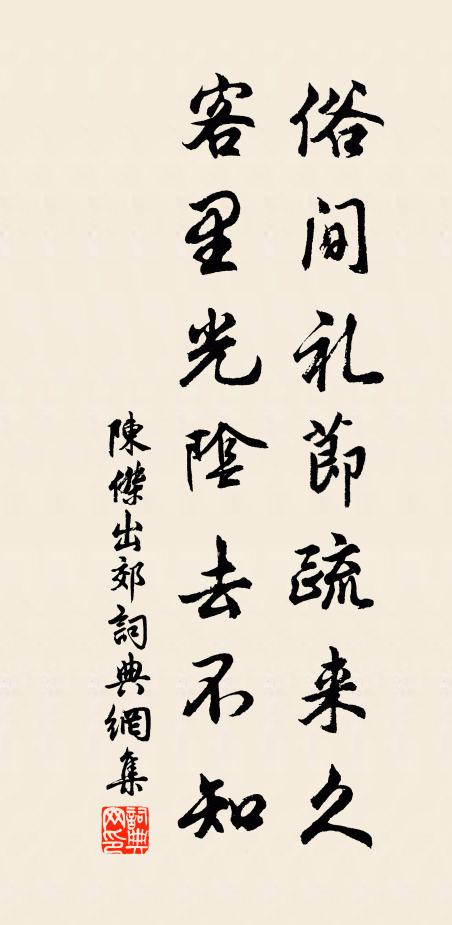 俗间礼節疏来久
客里光陰去不知
陳傑出郊詞典網集
詞典网印